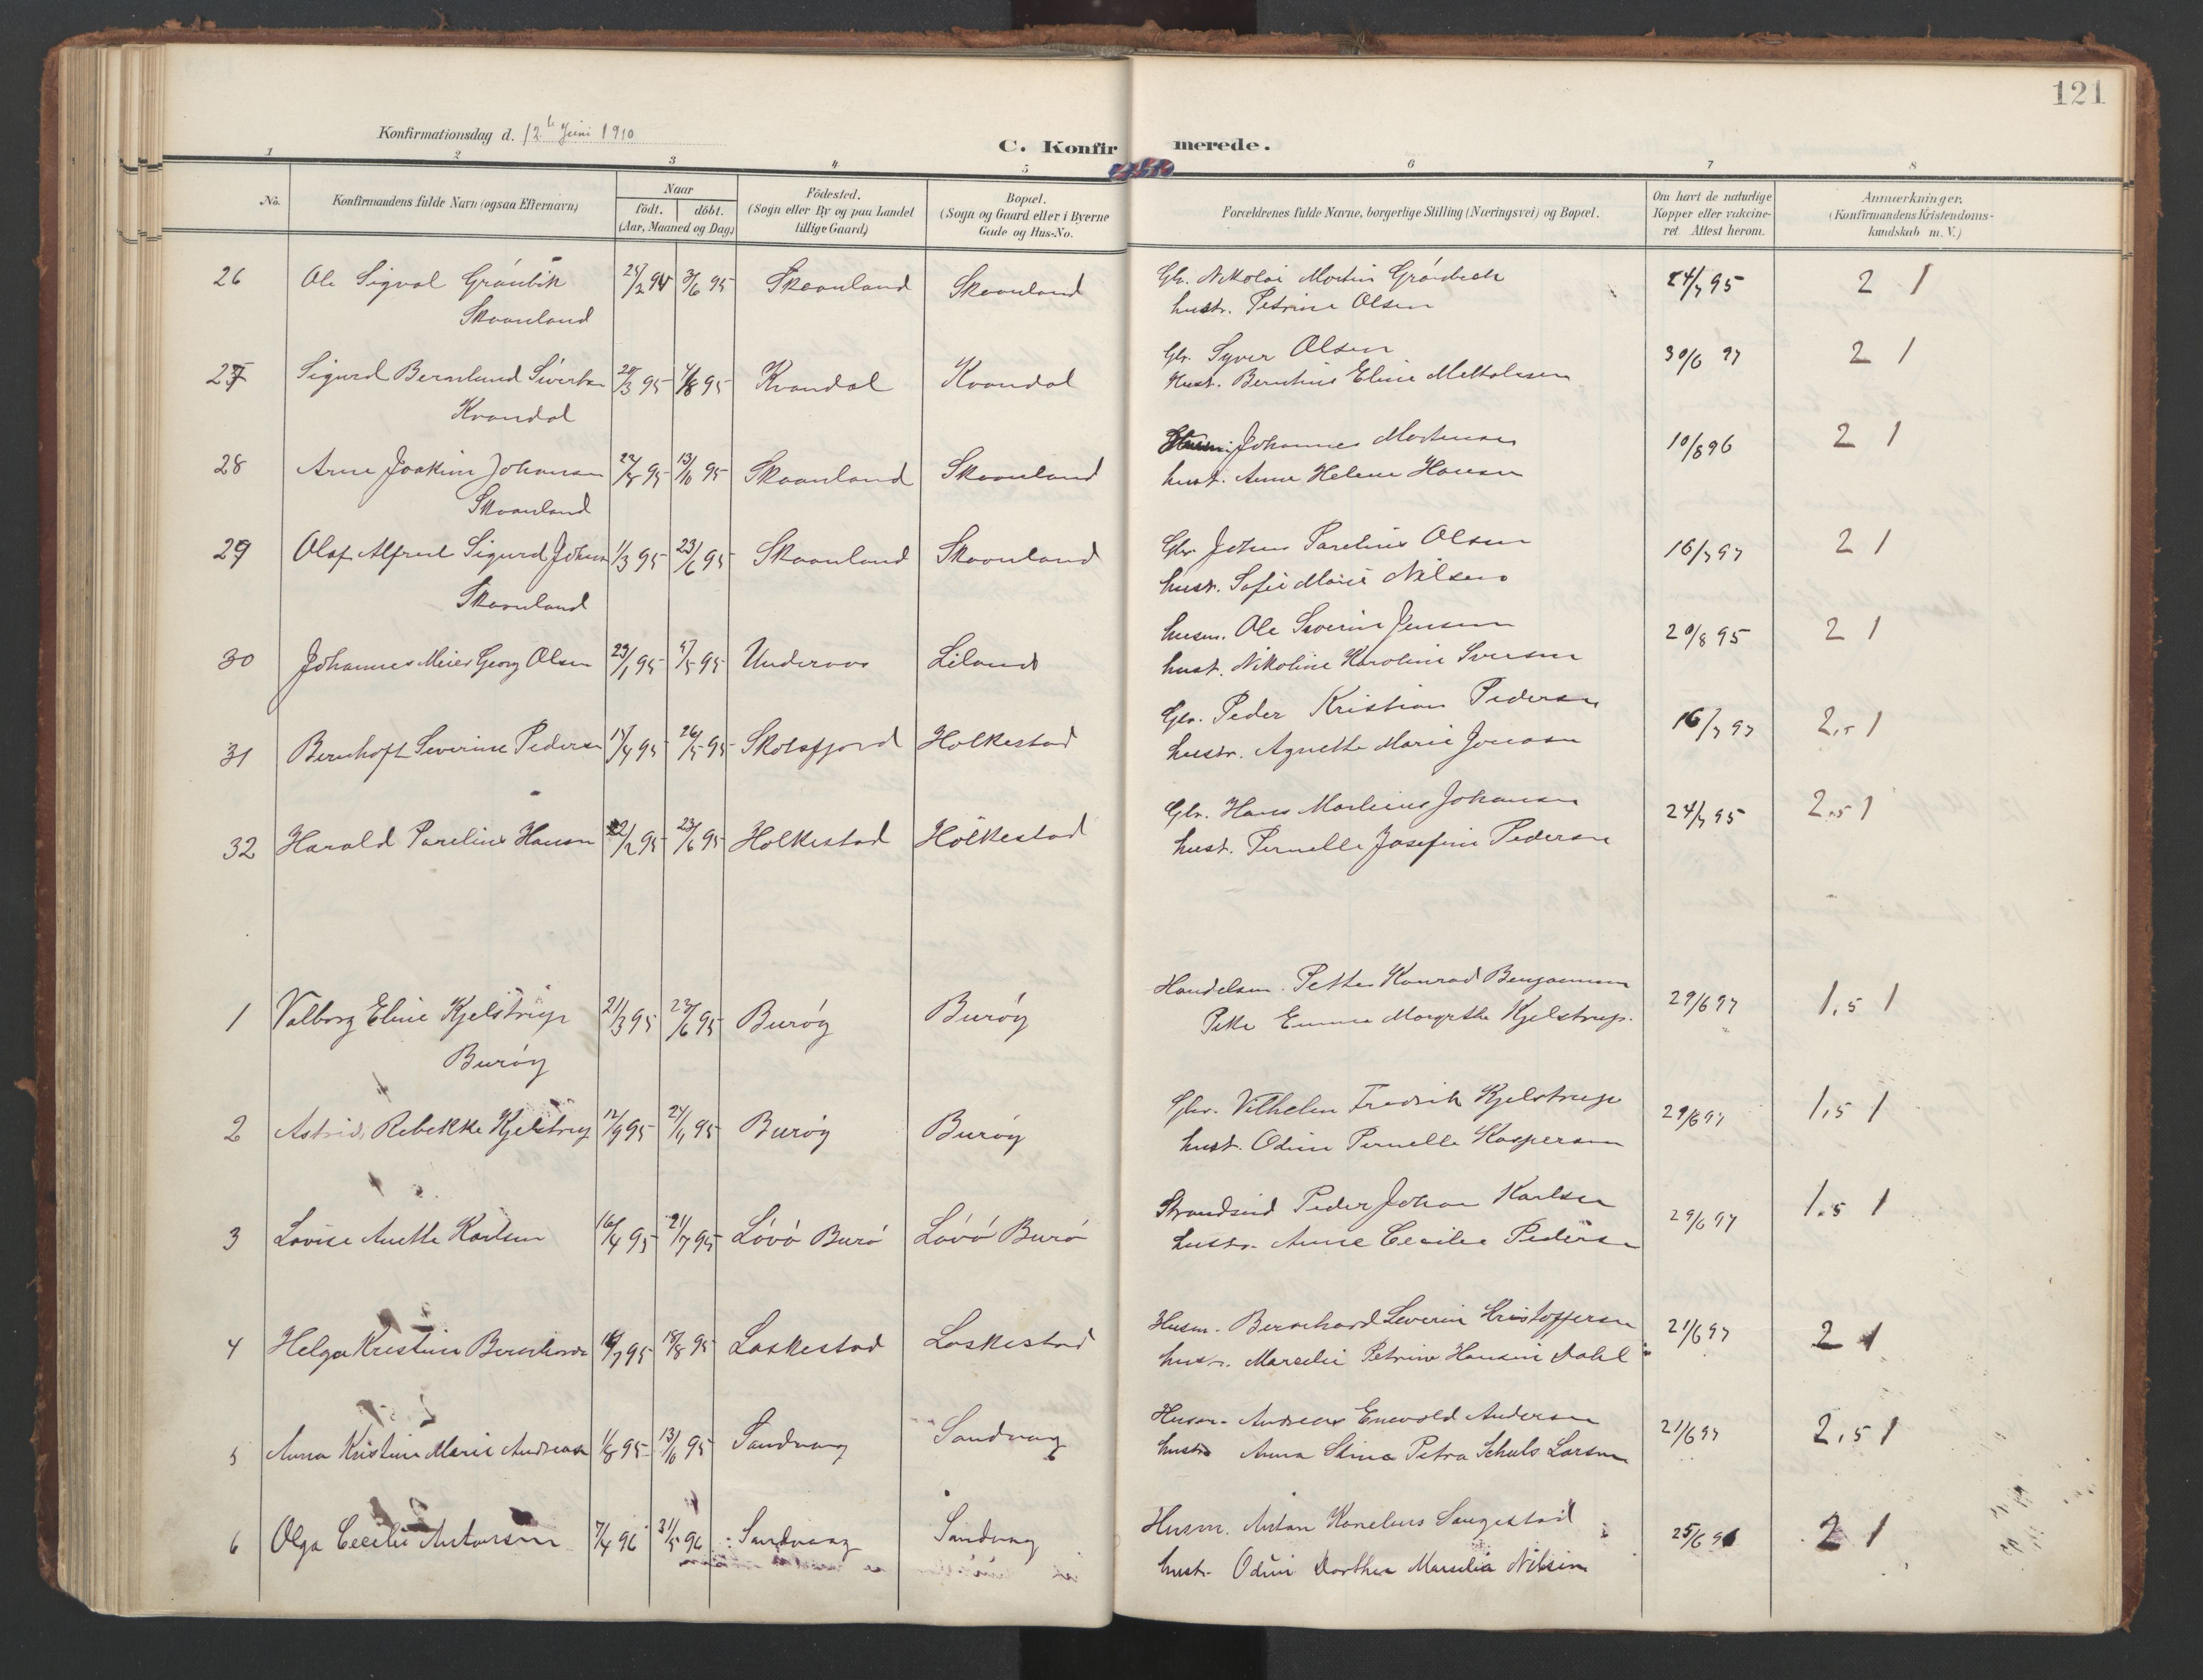 121
Konfirmationsdag d. 12te Juni 1910
C. Konfirmerede.
1 2 3 4 5 6 7 8
No. Konfirmandens fulde Navn (ogsaa Efternavn) Naar födt. döbt. (Aar, Maaned og Dag) Födested. (Sogn eller By og paa Landet tillige Gaard) Bopæl. (Sogn og Gaard eller i Byerne Gade og Hus-No. Forældrenes fulde Navne, borgerlige Stilling (Næringsvei) og Bopæl. Om havt de naturlige Kopper eller vakcineret Attest herom. Anmærkninger. (Konfirmandens Kristendomskundskab m. V.)
26 Ole Sigval Grönbek 3/6 95 Skaanland Skaanland Gbr. Nikolai Martin Grönbech 24/7 95 2 1
Skaanland hustr. Petrine Olsen
27 Sigurd Berntund Sivertsen 20/3 95 4/8 95 Kvandal Kvandal Gbr. Syver Olsen 30/6 97 2 1
Kvandal Hust. Eline
28 Arne Joakim Johansen 22/8 95 13/10 95 Skaanland Skaanland Johannes Mortensen 10/8 96 2 1
Skaanland hust. Anne Helene Hansen
29 Olaf Alfred Sigurd Johns 1/3 95 23/6 95 Skaanland Skaanland Gbr. Johns Parelius Olsen 16/7 97 2 1
Skaanland hust. Sofie Marie Nilsen
30 Johannes Meier Georg Olsen 29/1 95 5/5 95 Underaas Liland husm. Ole Severin Jensen 20/8 95 2 1
hust. Nikoline Karoline Iversen
31 Bernhoft Severine Pedersen 15/4 95 26/5 95 Skotsfjord Holkestad Gbr. Peder Kristian Pedersen 16/7 97 2,5 1
hustr. Agnethe Marie Jonasen
32 Harald Parelius Hansen 22/2 95 23/6 95 Holkestad Holkestad Gbr. Hans Martinus Johansen 24/7 95 2,5 1
hust. Pernelle Josefine Pedersen
1 Valborg Eline Kjelstrup 21/3 95 23/6 95 Buröy Buröy Handelsm. Petter Konrad Benjaminsen 29/6 97 1,5 1
Buröy Pike Emma Margrethe Kjelstrup.
2 Astrid Rebekke Kjelstrup 12/9 95 24/11 95 Buröy Buröy Gbr. Vilhelm Fredrik Kjelstrup 29/6 97 1,5 1
hust. Odine Pernelle Kaspersen
3 Lovise Anette Karlsen 16/4 95 21/7 95 Lövö Burö Lövö Burö Strandsid Peder Johan Karlsen 29/6 97 1,5 1
hustr. Anne Cecilie Pedersen
4 Helga Kristine 95 18/8 95 Laskestad Laskestad Husm. Bernhard Severin Kristoffersen 21/6 97 2 1
hustr. Marselie Petrine Hansen Dahl
5 Anna Kristine Marie Andreasen 1/8 95 13/10 95 Sandvaag Sandvaag Husm. Andreas Enevold Andersen 21/6 97 2,5 1
hustr Anna Stina Petra Schuls Larsen
6 Olga Cecilie Antonsen 7/4 96 31/5 96 Sandvaag Sandvaag Husm. Anton Kornelius Saugestad 25/6 2 1
hust. Odine Dorthea Marselia Nilsen